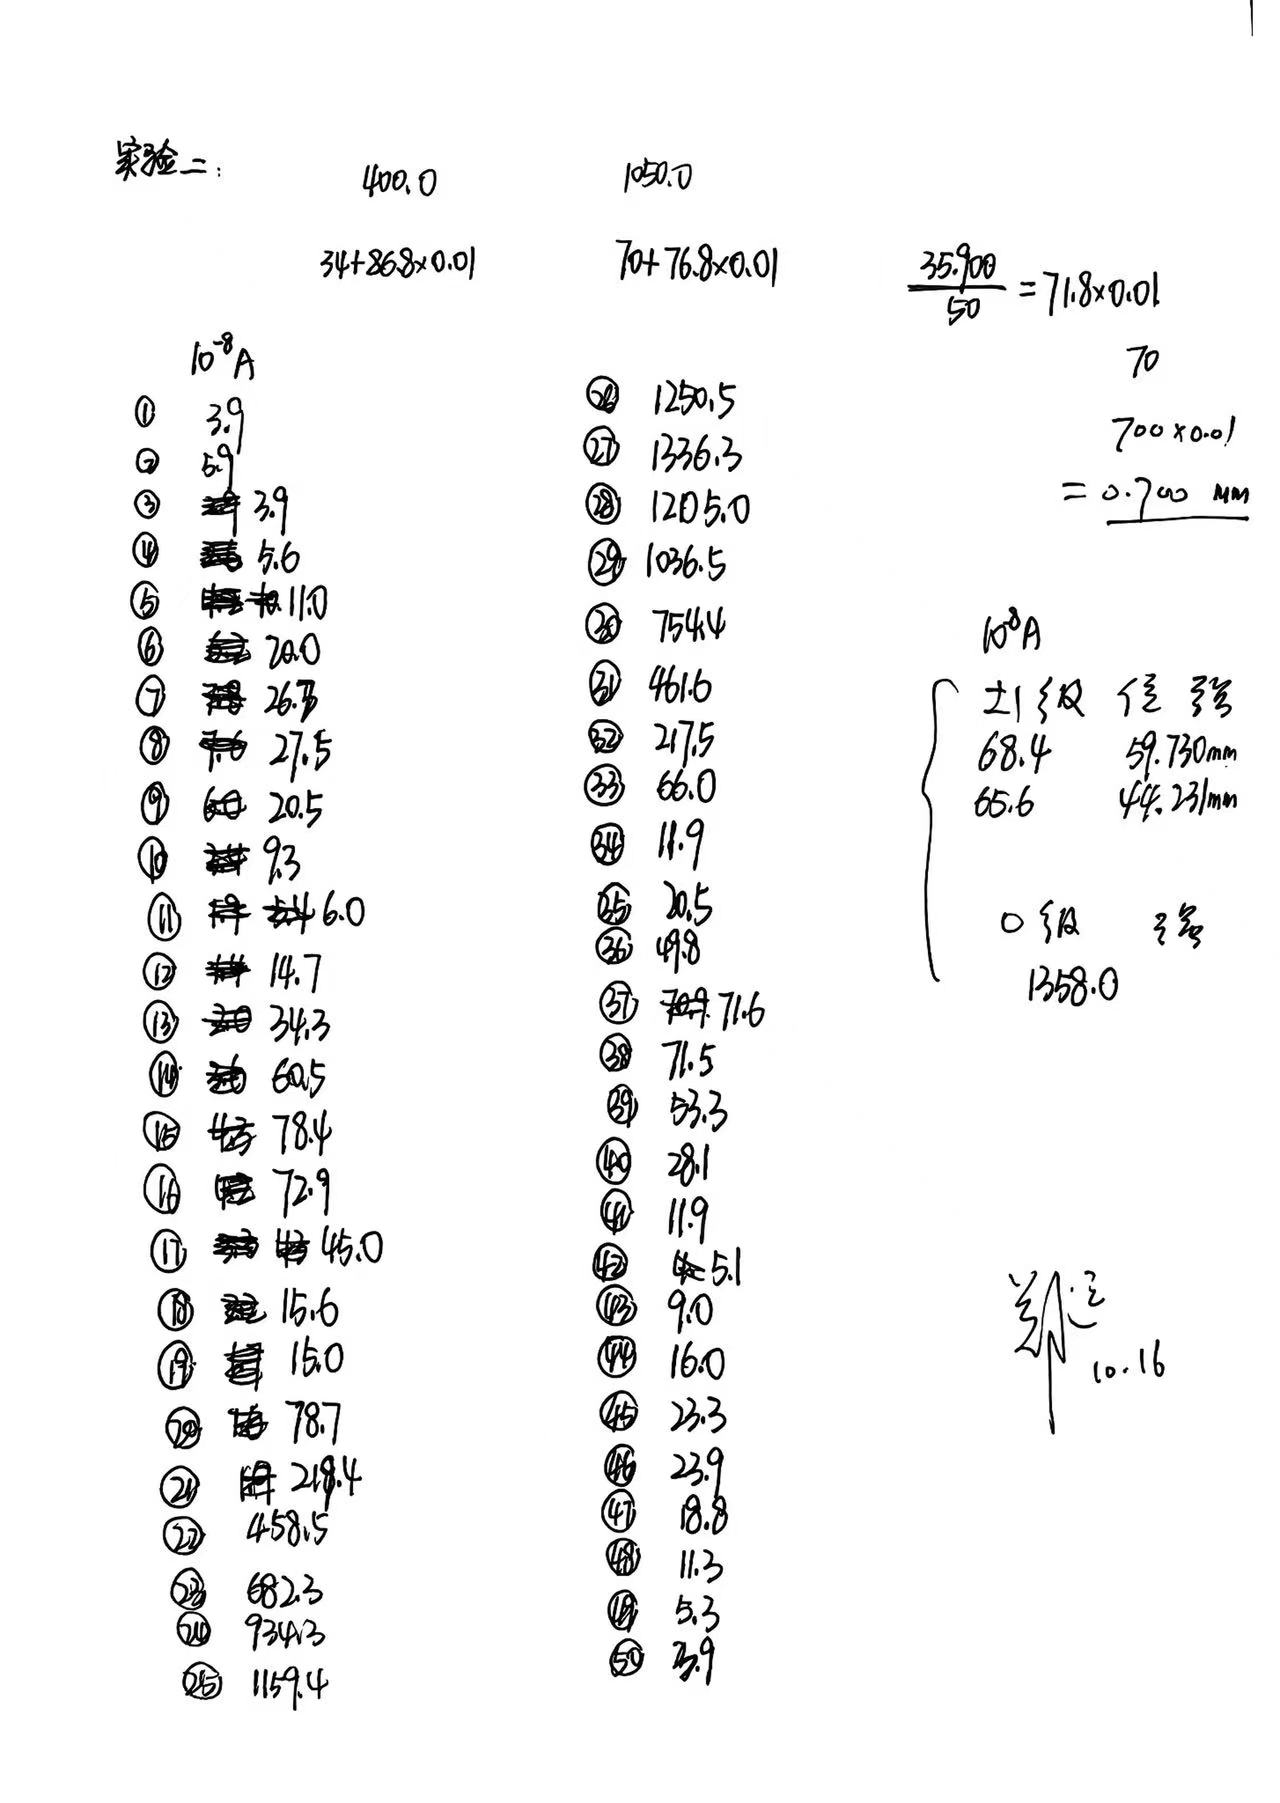 实验二:
400.0 1050.0
34+86.8×0.01 70+76.8×0.01
35.900/50 = 71.8×0.01
70
700×0.01
= 0.700 mm
10⁻⁸A
① 3.9
② 5.9
③ 3.9
④ 5.6
⑤ 11.0
⑥ 20.0
⑦ 26.7
⑧ 27.5
⑨ 20.5
⑩ 9.3
⑪ 6.0
⑫ 14.7
⑬ 34.3
⑭ 60.5
⑮ 78.4
⑯ 72.9
⑰ 45.0
⑱ 15.6
⑲ 15.0
⑳ 78.7
㉑ 218.4
㉒ 458.5
㉓ 682.3
㉔ 934.3
㉕ 1159.4
㉖ 1250.5
㉗ 1336.3
㉘ 1205.0
㉙ 1036.5
㉚ 754.4
㉛ 461.6
㉜ 217.5
㉝ 66.0
㉞ 11.9
㉟ 20.5
㊱ 49.8
㊲ 71.6
㊳ 71.5
㊴ 53.3
㊵ 28.1
㊶ 11.9
㊷ 5.1
㊸ 9.0
㊹ 16.0
㊺ 23.3
㊻ 23.9
㊼ 18.8
㊽ 11.3
㊾ 5.3
㊿ 3.9
10⁻⁸A
±1级 位 强
68.4 59.730mm
65.6 44.231mm
0级 强
1358.0
10.16